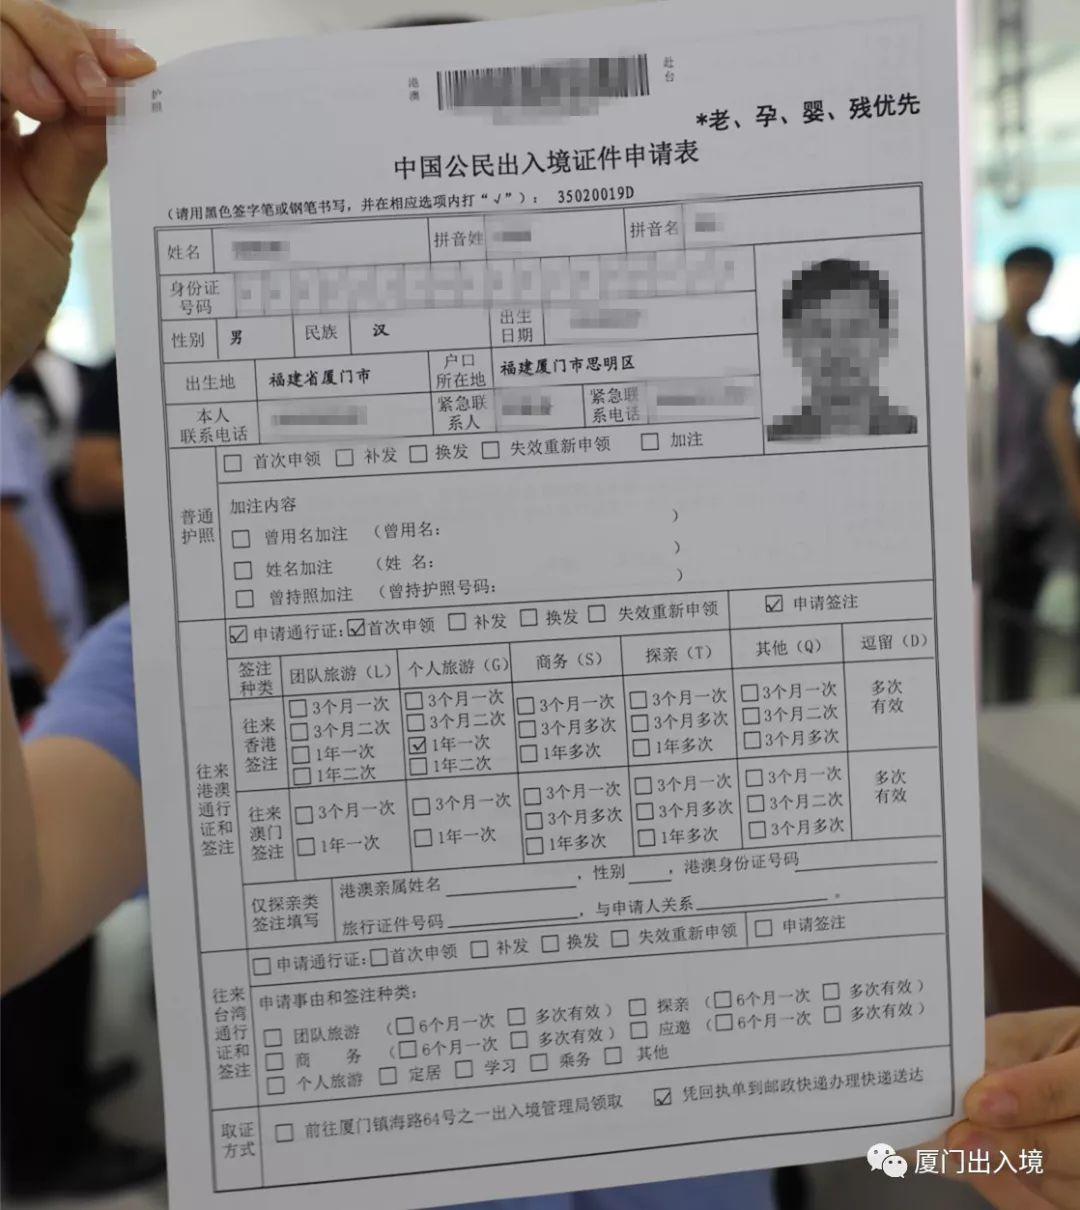 护照
港澳
赴台
*老、孕、婴、残优先
中国公民出入境证件申请表
（请用黑色签字笔或钢笔书写，并在相应选项内打“√”）： 35020019D
姓名 拼音姓 拼音名
身份证号码
性别 男 民族 汉 出生日期
出生地 福建省厦门市 户口所在地 福建厦门市思明区
本人联系电话 紧急联系人 紧急联系电话
普通护照
□ 首次申领 □ 补发 □ 换发 □ 失效重新申领 □ 加注
加注内容
□ 曾用名加注 （曾用名： ）
□ 姓名加注 （姓 名： ）
□ 曾持照加注 （曾持护照号码： ）
往来港澳通行证和签注
☑ 申请通行证：☑首次申领 □ 补发 □ 换发 □ 失效重新申领 ☑ 申请签注
签注种类 团队旅游（L） 个人旅游（G） 商务（S） 探亲（T） 其他（Q） 逗留（D）
往来香港签注
□3个月一次 □3个月一次 □3个月一次 □3个月一次 □3个月一次 多次有效
□3个月二次 □3个月二次 □3个月多次 □3个月多次 □3个月二次
□1年一次 ☑1年一次 □1年多次 □1年多次 □3个月多次
□1年二次 □1年二次
往来澳门签注
□3个月一次 □3个月一次 □3个月一次 □3个月一次 □3个月一次 多次有效
□1年一次 □1年一次 □3个月多次 □3个月多次 □3个月二次
□1年多次 □1年多次 □3个月多次
仅探亲类签注填写
港澳亲属姓名 ，性别 ，港澳身份证号码
旅行证件号码 ，与申请人关系 。
往来台湾通行证和签注
□申请通行证：□首次申领 □ 补发 □ 换发 □ 失效重新申领 □ 申请签注
申请事由和签注种类：
□ 团队旅游 （□6个月一次 □ 多次有效） □ 探亲 （□6个月一次 □ 多次有效）
□ 商 务 （□6个月一次 □ 多次有效） □ 应邀 （□6个月一次 □ 多次有效）
□ 个人旅游 □ 定居 □ 学习 □ 乘务 □ 其他
取证方式
□ 前往厦门镇海路64号之一出入境管理局领取 ☑ 凭回执单到邮政快递办理快递送达
厦门出入境